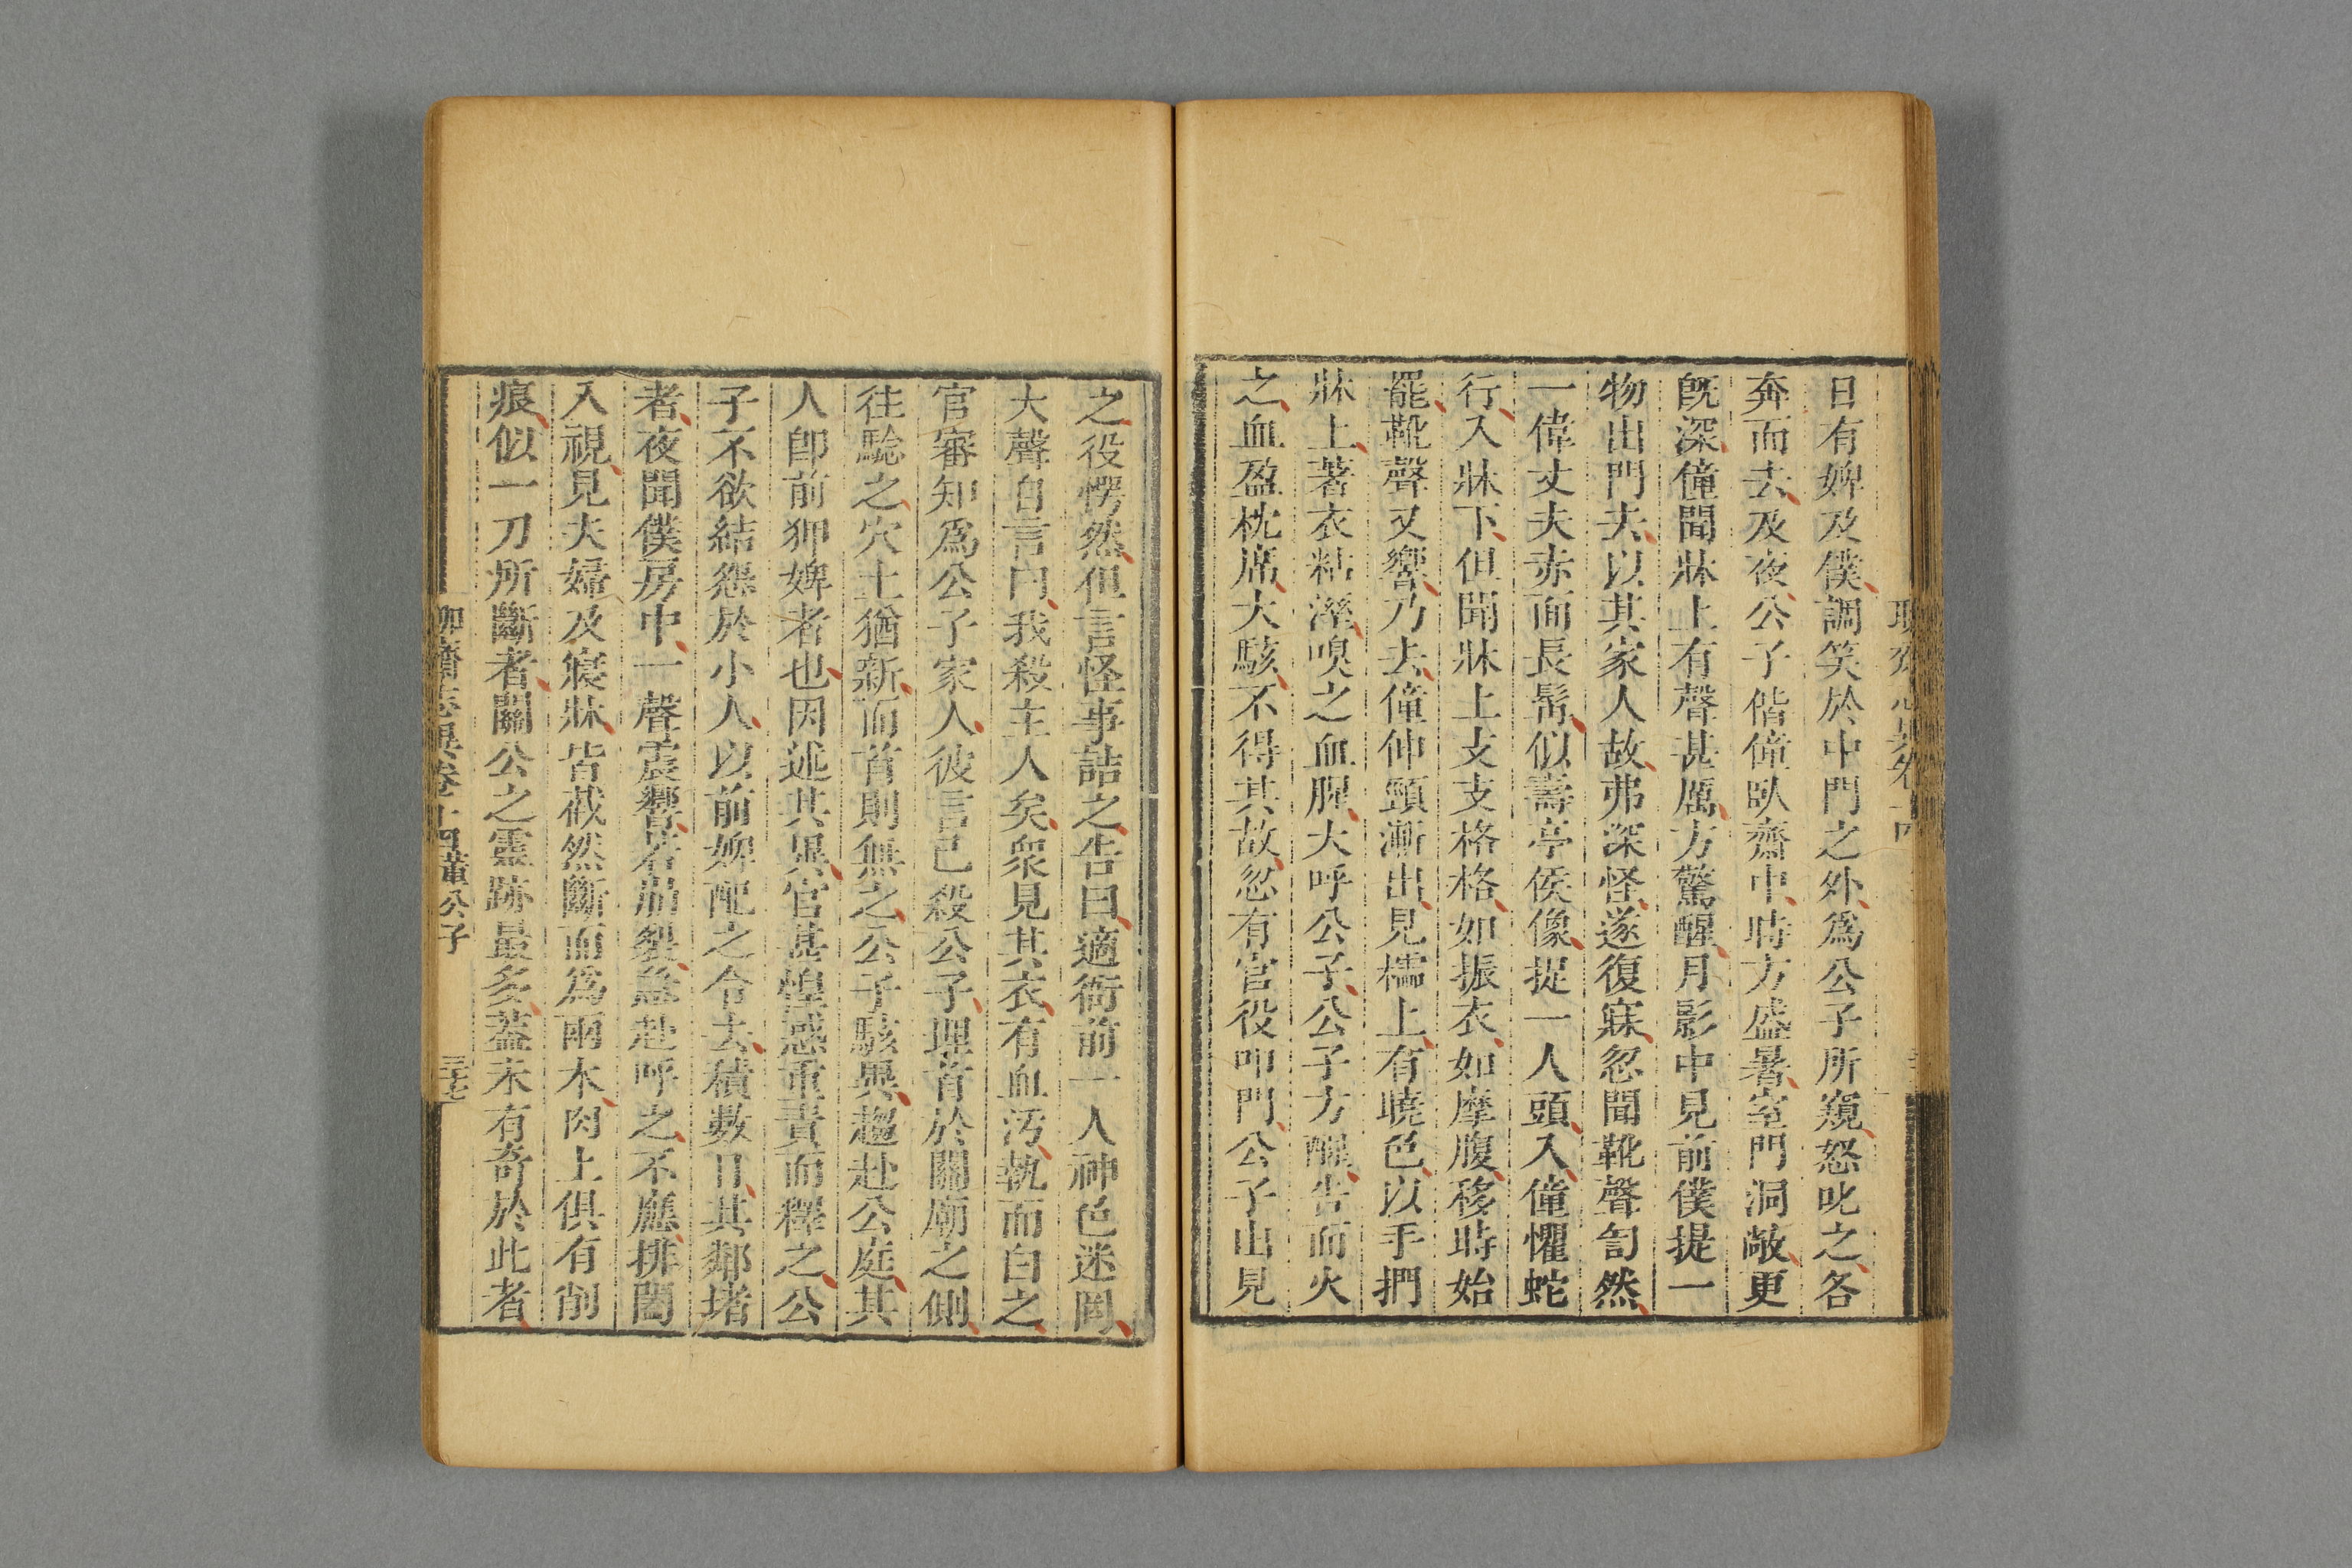 日有婢及僕調笑於中門之外爲公子所窺怒叱之各
奔而去及夜公子偕僮臥齋中時方盛暑室門洞敞更
旣深僮聞牀上有聲甚厲方驚醒月影中見前僕提一
物出門去以其家人故弗深怪遂復寐忽聞靴聲訇然
一偉丈夫赤面長髯似壽亭侯像捉一人頭入僮懼蛇
行入牀下但聞牀上支支格格如振衣如摩腹移時始
罷靴聲又響乃去僮伸頸漸出見櫺上有曉色以手捫
牀上著衣粘溼嗅之血腥大呼公子公子方醒告而火
之血盈枕席大駭不得其故忽有官役叩門公子出見
之役愕然但言怪事詰之告曰適衙前一人神色迷罔
大聲自言曰我殺主人矣衆見其衣有血汚執而白之
官審知爲公子家人彼言已殺公子埋首於關廟之側
往驗之穴土猶新而首則無之公子駭異趨赴公庭其
人卽前狎婢者也因述其異官甚惶惑重責而釋之公
子不欲結怨於小人以前婢配之令去積數日其鄰堵
者夜聞僕房中一聲震響若崩裂急赴呼之不應排闥
入視見夫婦及寢牀皆截然斷而爲兩木肉上俱有削
痕似一刀所斷者關公之靈跡最多蓋未有奇於此者
聊齋志異卷十四 董公子 三十七